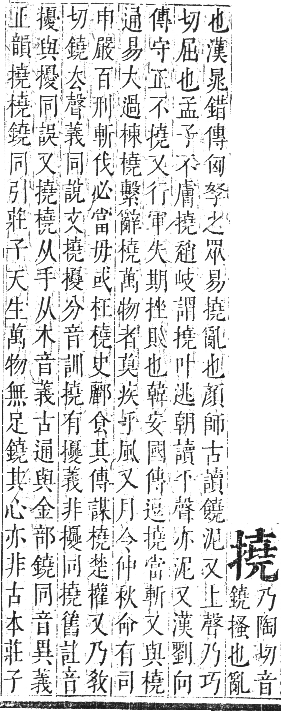 撓
乃陶切音
鐃搔也亂
也漢晁錯傳匈孥之眾易撓亂也顏師古讀鐃泥又上聲乃巧
切屈也孟子不膚撓趙岐謂撓叶逃朝讀下聲亦泥又漢劉向
傳守正不撓又行軍失期挫䀏也韓安國傳逗撓當斬又與橈
通易大過棟橈繫辭橈萬物者莫疾乎風又月令仲秋命有司
申嚴百刑斬伐必當毋或枉橈史酈食其傳謀橈楚權又乃敎
切鐃去聲義同說文撓擾分音訓撓有擾義非擾同撓舊註音
擾與擾同誤又撓橈从手从木音義古通與金部鐃同音異義
正韻撓橈鐃同引莊子天生萬物無足鐃其心亦非古本莊子